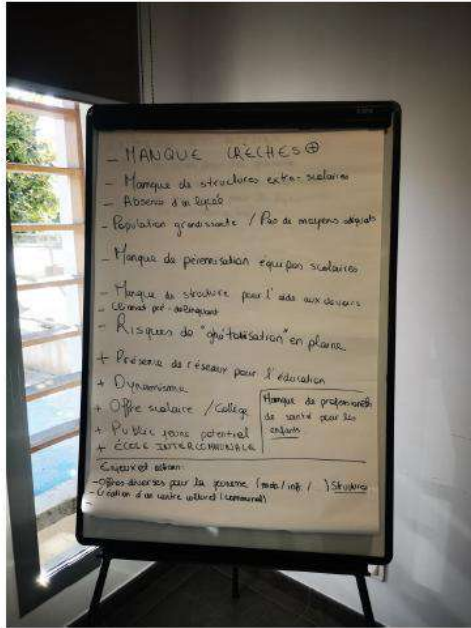 - MANQUE CRÈCHES ⊕
- Manque de structures extra-scolaires
- Absence d'un lycée
- Population grandissante / Pas de moyens adéquats
- Manque de pérennisation équipes scolaires
- Manque de structure pour l'aide aux devoirs
- Climat pré-délinquant
- Risques de "ghéttoïsation" en plaine
+ Présence de réseaux pour l'éducation
+ Dynamisme
+ Offre scolaire / Collège
+ Public jeune potentiel
+ ÉCOLE INTERCOMMUNALE
Manque de professionnels
de santé pour les
enfants
Enjeux et action:
- Offres diverses pour la jeunesse ( / inf. / ) Structures
- Création d'un centre culturel (communal)